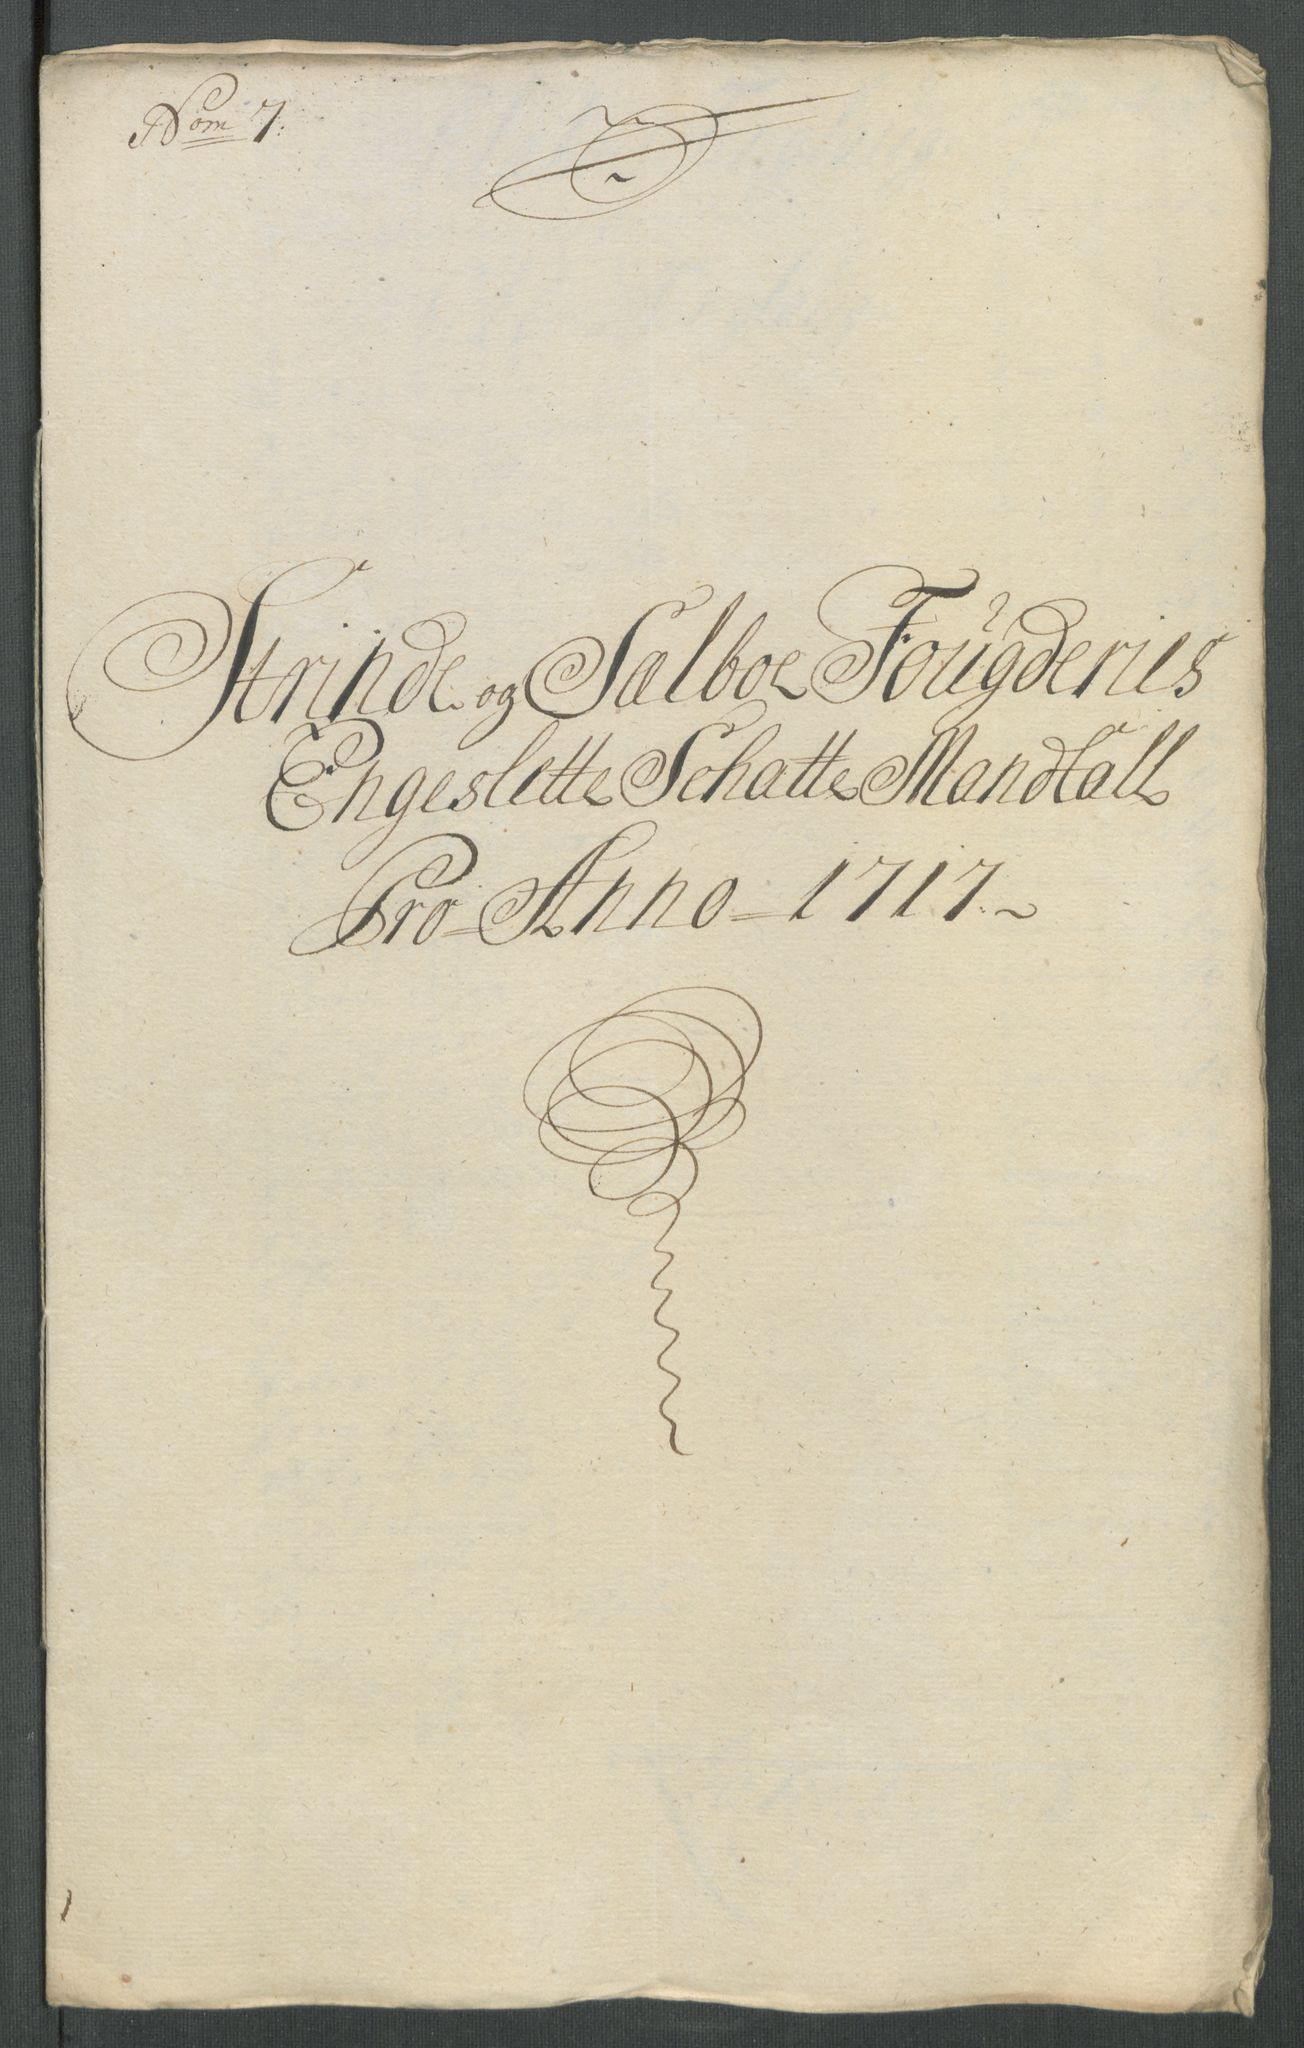 Nom 7:
Strinde og Sælboe Foügderies
Engeslette Schatte Mandtall
Pro Anno 1717